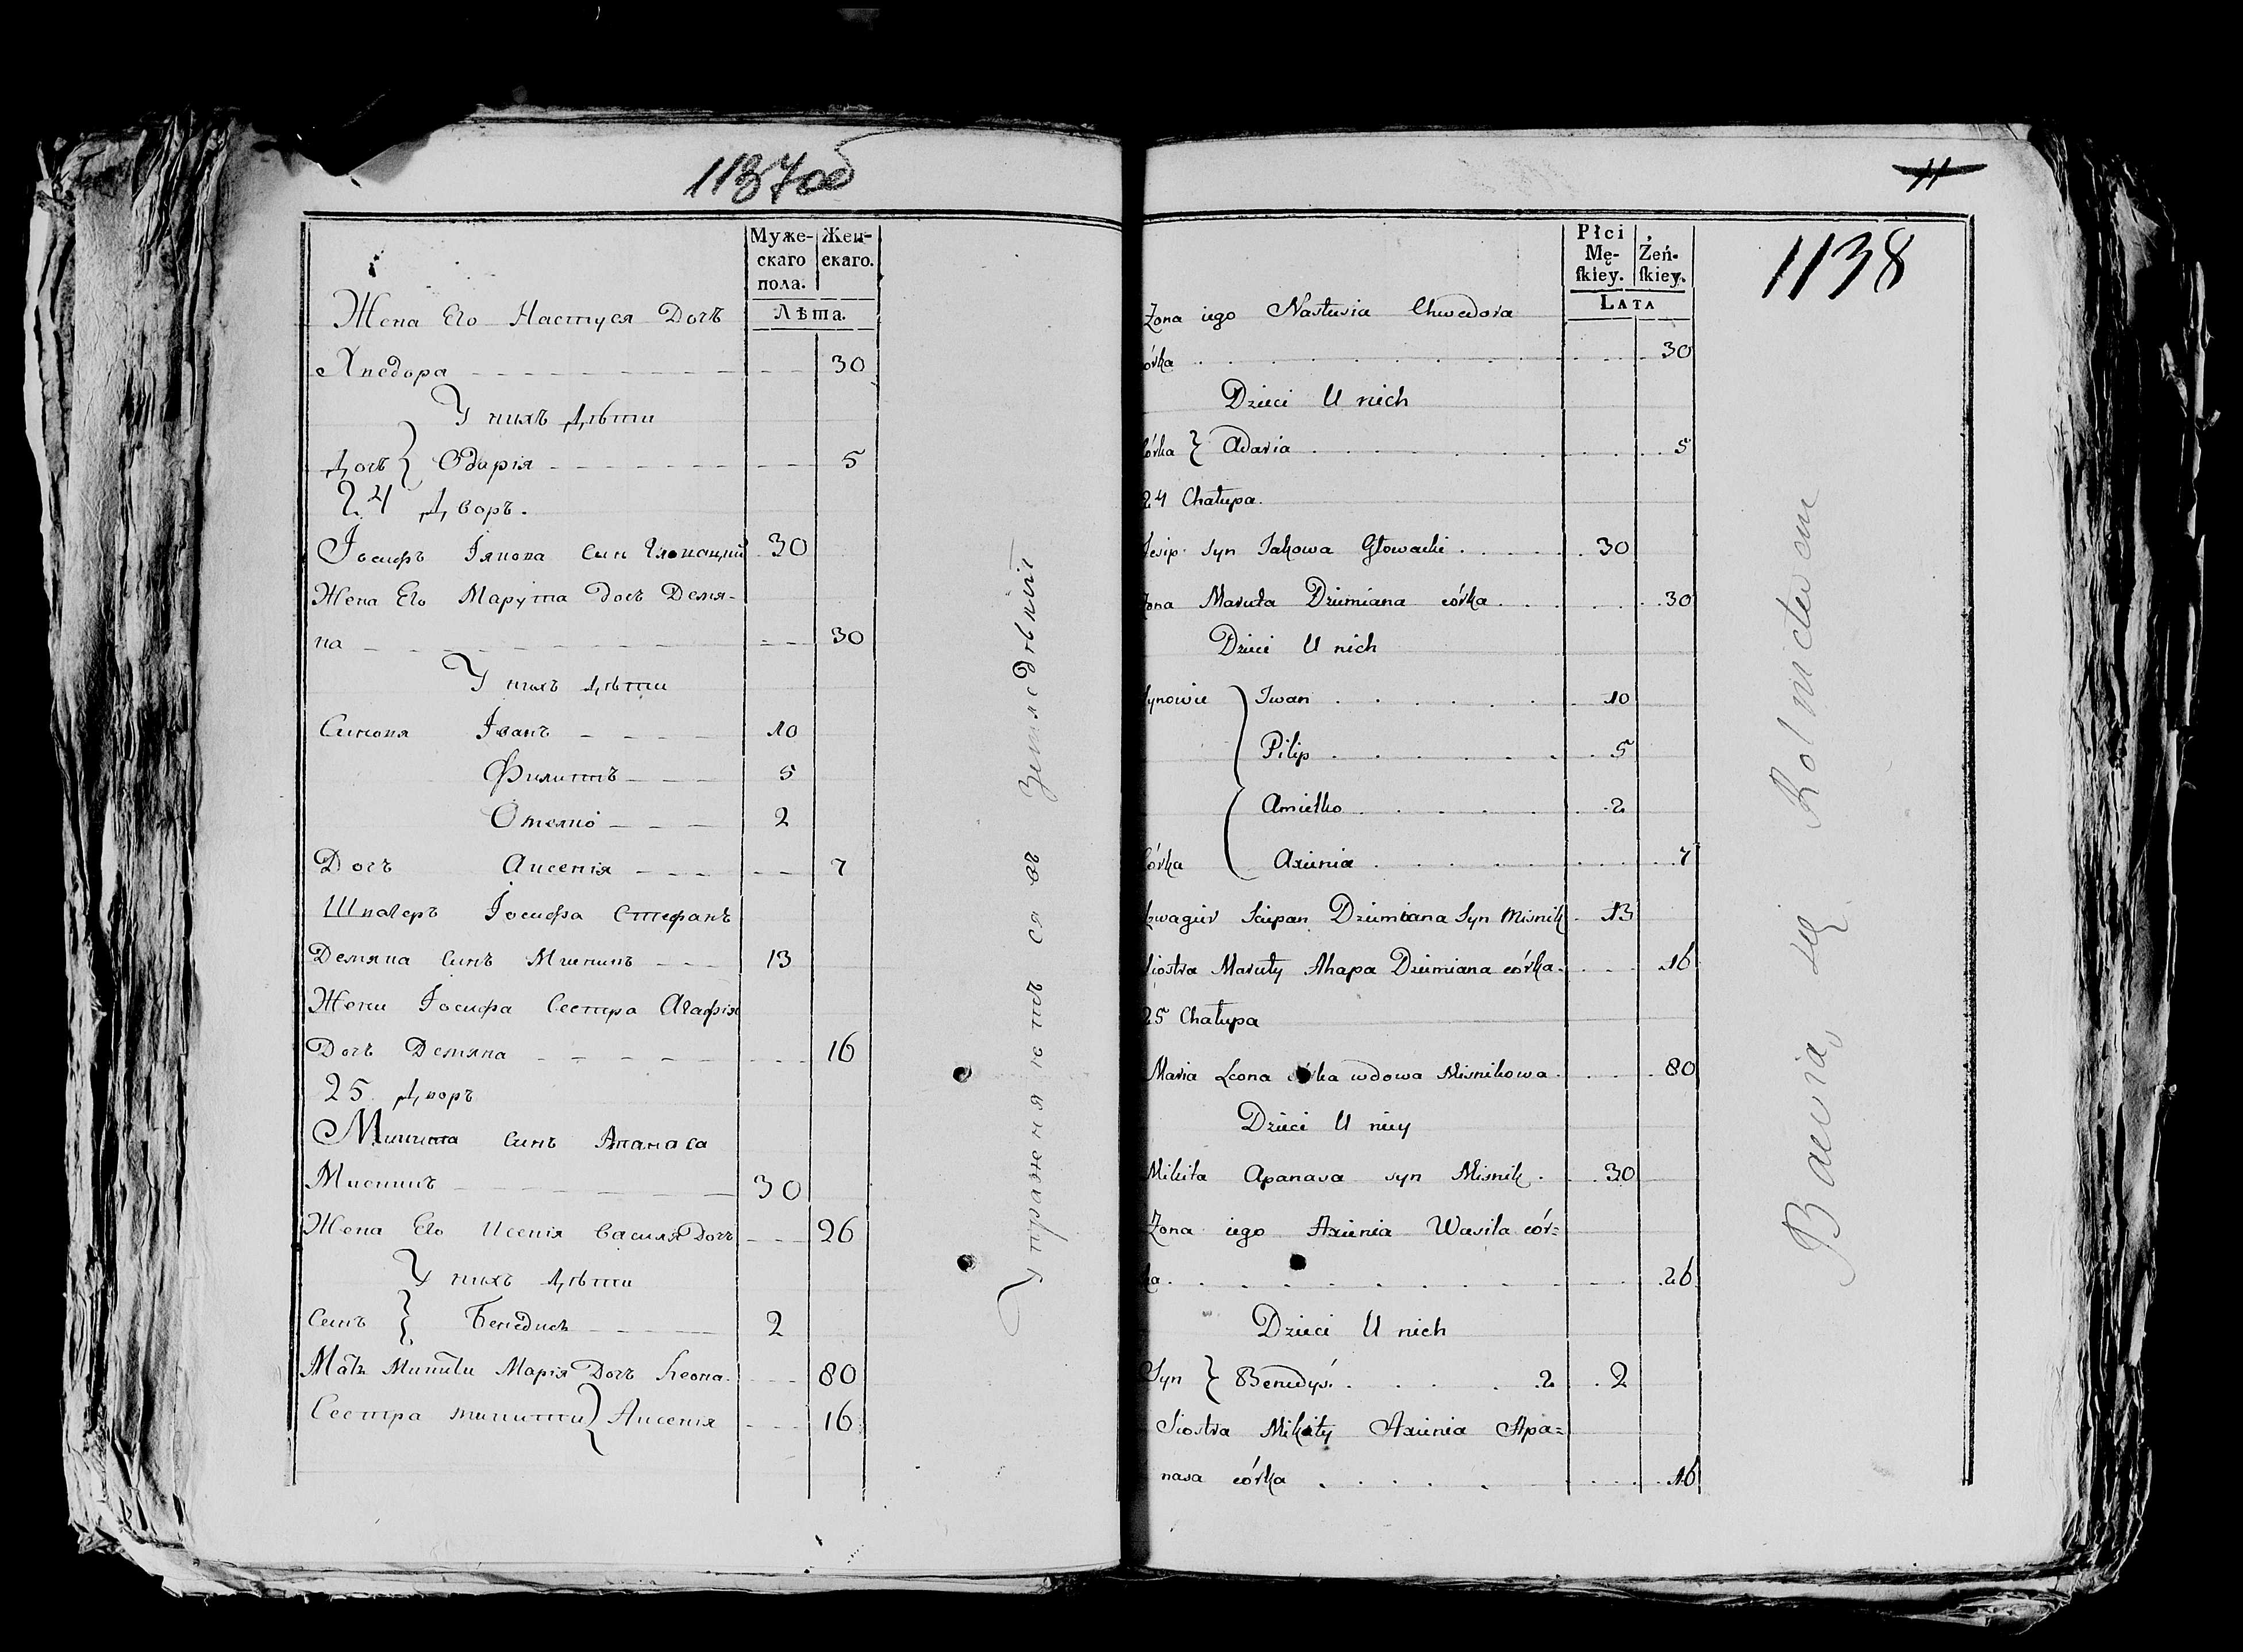 1137об
Муже-
скаго
пола.
Жен-
скаго.
Лѣта.
Жена Его Настуся Дочъ
Хведора 30
У нихъ Дѣти
Дочъ } Одарія 5
24 Дворъ.
Іосифъ Якова Син Гловацкий 30
Жена Его Марута дочъ Демя-
на 30
У нихъ Дѣти
Синовя Іванъ 10
Филиппъ 5
2
Дочъ Аксенія 7
Швагеръ Іосифа Стефанъ
Демяна Синъ 13
Жени Іосифа Сестра Агафія
Дочъ Демяна 16
25 Дворъ
Микита Синъ Апанаса
Мисникъ 30
Жена Его Ксенія Василя Дочъ 26
У нихъ Дѣти
Синъ } Бенедисъ 2
Мать Микити Марія Дочъ Леона 80
Сестра Микити } Аксенія 16
Упражняются въ Земледѣлии
11
1138
Płci
Mę-
skiey.
Żeń-
skiey.
Lata
Żona iego Nastusia Chwedora
córka 30
Dzieci U nich
Córka } Adaria 5
24 Chałupa.
Jesip Syn Jakowa Głowacki 30
Żona Maruta Dziemiana córka 30
Dzieci U nich
Synowie } Iwan 10
Pilip 5
Amiełko 2
Córka Axienia 7
Szwagier Sciepan Dziemiana Syn Misnik 13
Siostra Maruty Ahapa Dziemiana córka 16
25 Chałupa
Maria Leona córka wdowa Misnikowa 80
Dzieci U niey
Mikita Apanasa syn Misnik 30
Żona iego Axienia Wasila cór=
ka 26
Dzieci U nich
Syn } Benedyś 2 2
Siostra Mikity Axienia Apa=
nasa córka 16
Bawią się Rolnictwem